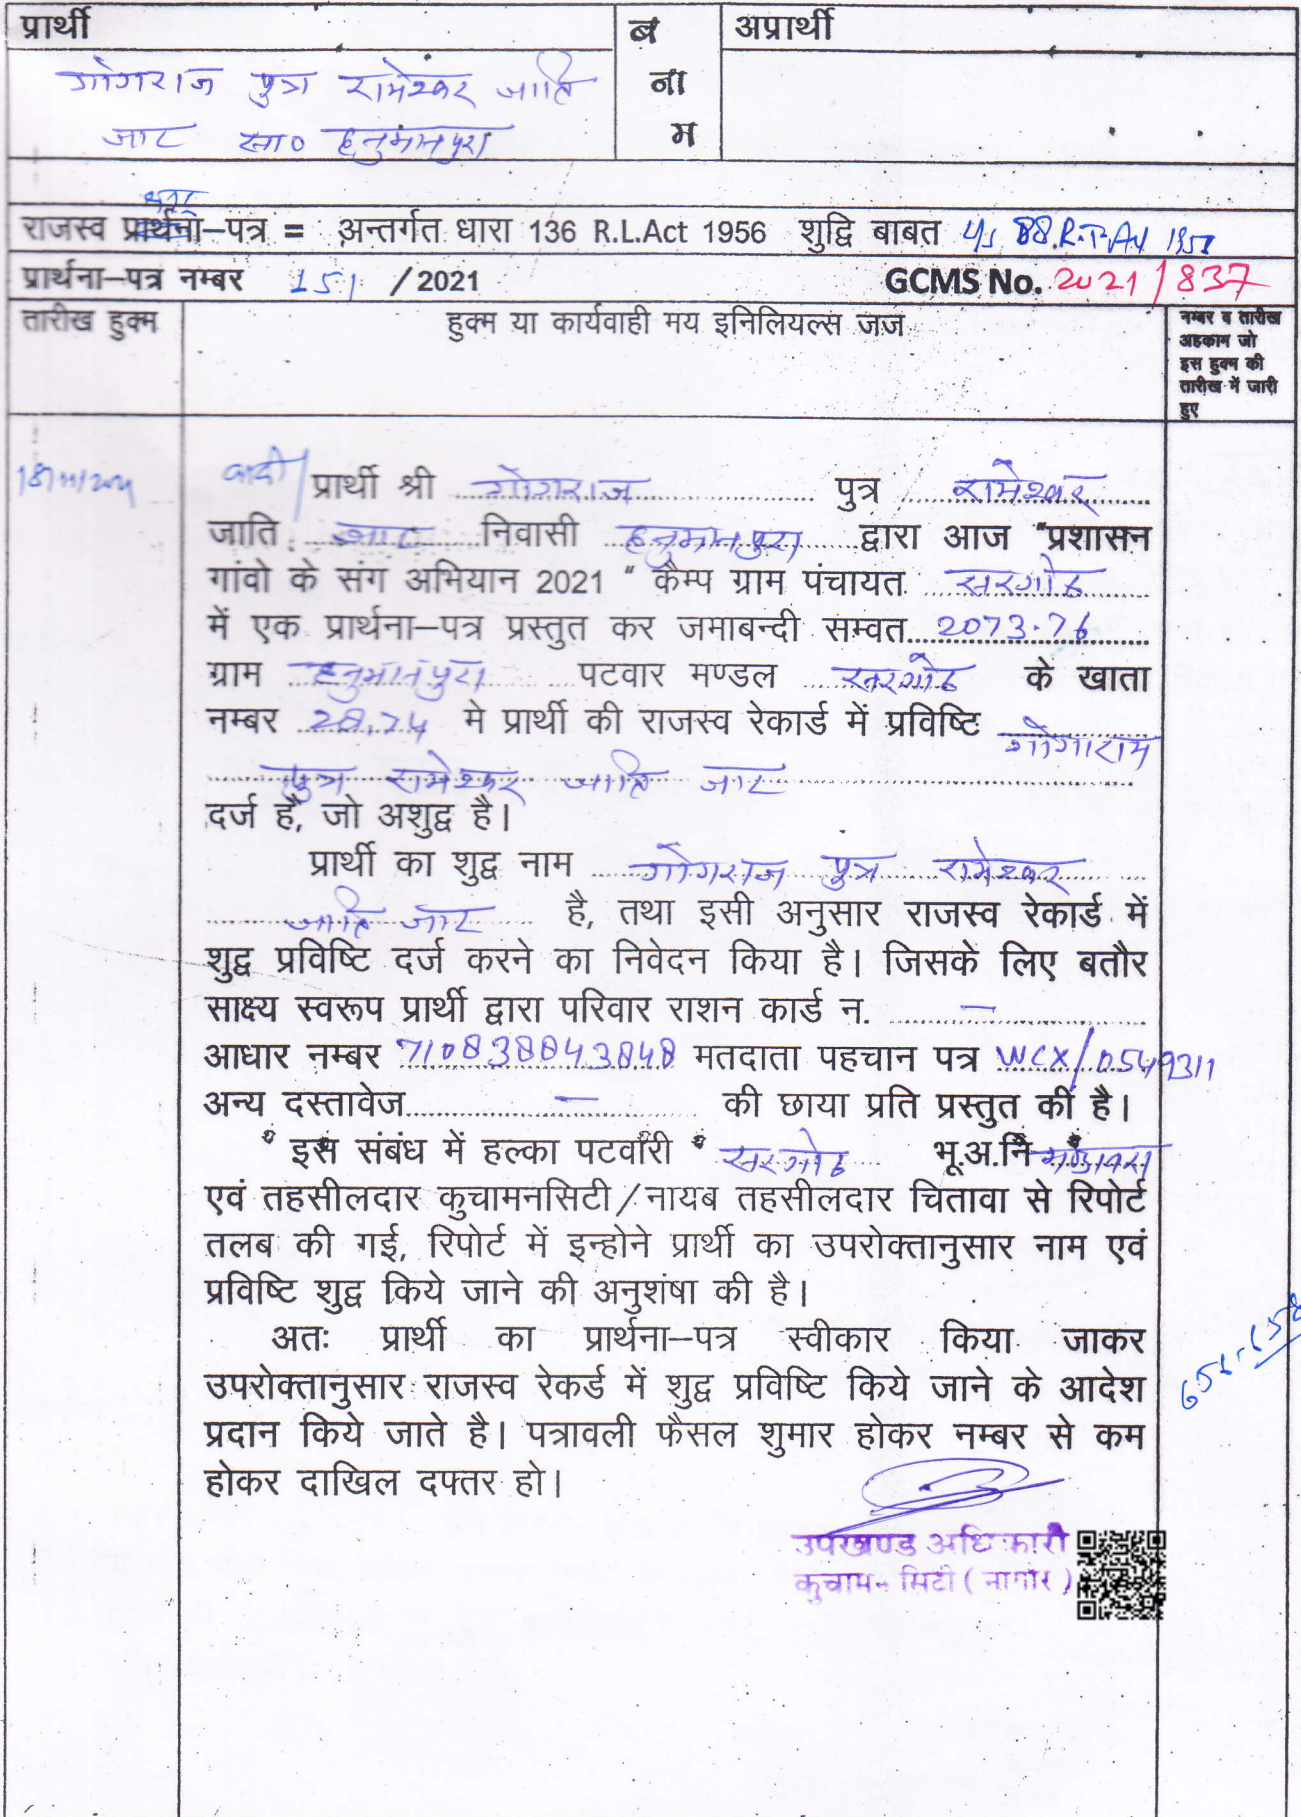 प्रार्थी
ब
ना
म
अप्रार्थी
गोगराज पुत्र रामेश्वर जाति
जाट सा० हनुमानपुरा
राजस्व प्रार्थना–पत्र = अन्तर्गत धारा 136 R.L.Act 1956 शुद्वि बाबत u/s 88.R.T.Act
प्रार्थना–पत्र नम्बर 151 /2021 GCMS No. 2021/837
तारीख हुक्म
हुक्म या कार्यवाही मय इनिलियल्स जज
नम्बर व तारीख
अहकाम जो
इस हुक्म की
तारीख में जारी
हुए
18/11/2021
वादी/ प्रार्थी श्री गोगराज पुत्र रामेश्वर
जाति जाट निवासी हनुमानपुरा द्वारा आज "प्रशासन
गांवो के संग अभियान 2021 " कैम्प ग्राम पंचायत सरगोठ
में एक प्रार्थना–पत्र प्रस्तुत कर जमाबन्दी सम्वत 2073-76
ग्राम हनुमानपुरा पटवार मण्डल सरगोठ के खाता
नम्बर 28,74 मे प्रार्थी की राजस्व रेकार्ड में प्रविष्टि गोगाराम
पुत्र रामेश्वर जाति जाट
दर्ज है, जो अशुद्व है।
प्रार्थी का शुद्व नाम गोगराज पुत्र रामेश्वर
जाति जाट है, तथा इसी अनुसार राजस्व रेकार्ड में
शुद्व प्रविष्टि दर्ज करने का निवेदन किया है। जिसके लिए बतौर
साक्ष्य स्वरूप प्रार्थी द्वारा परिवार राशन कार्ड न. —
आधार नम्बर 710838843848 मतदाता पहचान पत्र WCX/0549311
अन्य दस्तावेज — की छाया प्रति प्रस्तुत की है।
इस संबंध में हल्का पटवारी सरगोठ भू.अ.नि
एवं तहसीलदार कुचामनसिटी/नायब तहसीलदार चितावा से रिपोर्ट
तलब की गई, रिपोर्ट में इन्होने प्रार्थी का उपरोक्तानुसार नाम एवं
प्रविष्टि शुद्व किये जाने की अनुशंषा की है।
अतः प्रार्थी का प्रार्थना–पत्र स्वीकार किया जाकर
उपरोक्तानुसार राजस्व रेकर्ड में शुद्व प्रविष्टि किये जाने के आदेश
प्रदान किये जाते है। पत्रावली फैसल शुमार होकर नम्बर से कम
होकर दाखिल दफ्तर हो।
उपखण्ड अधिकारी
कुचामन सिटी (नागौर)